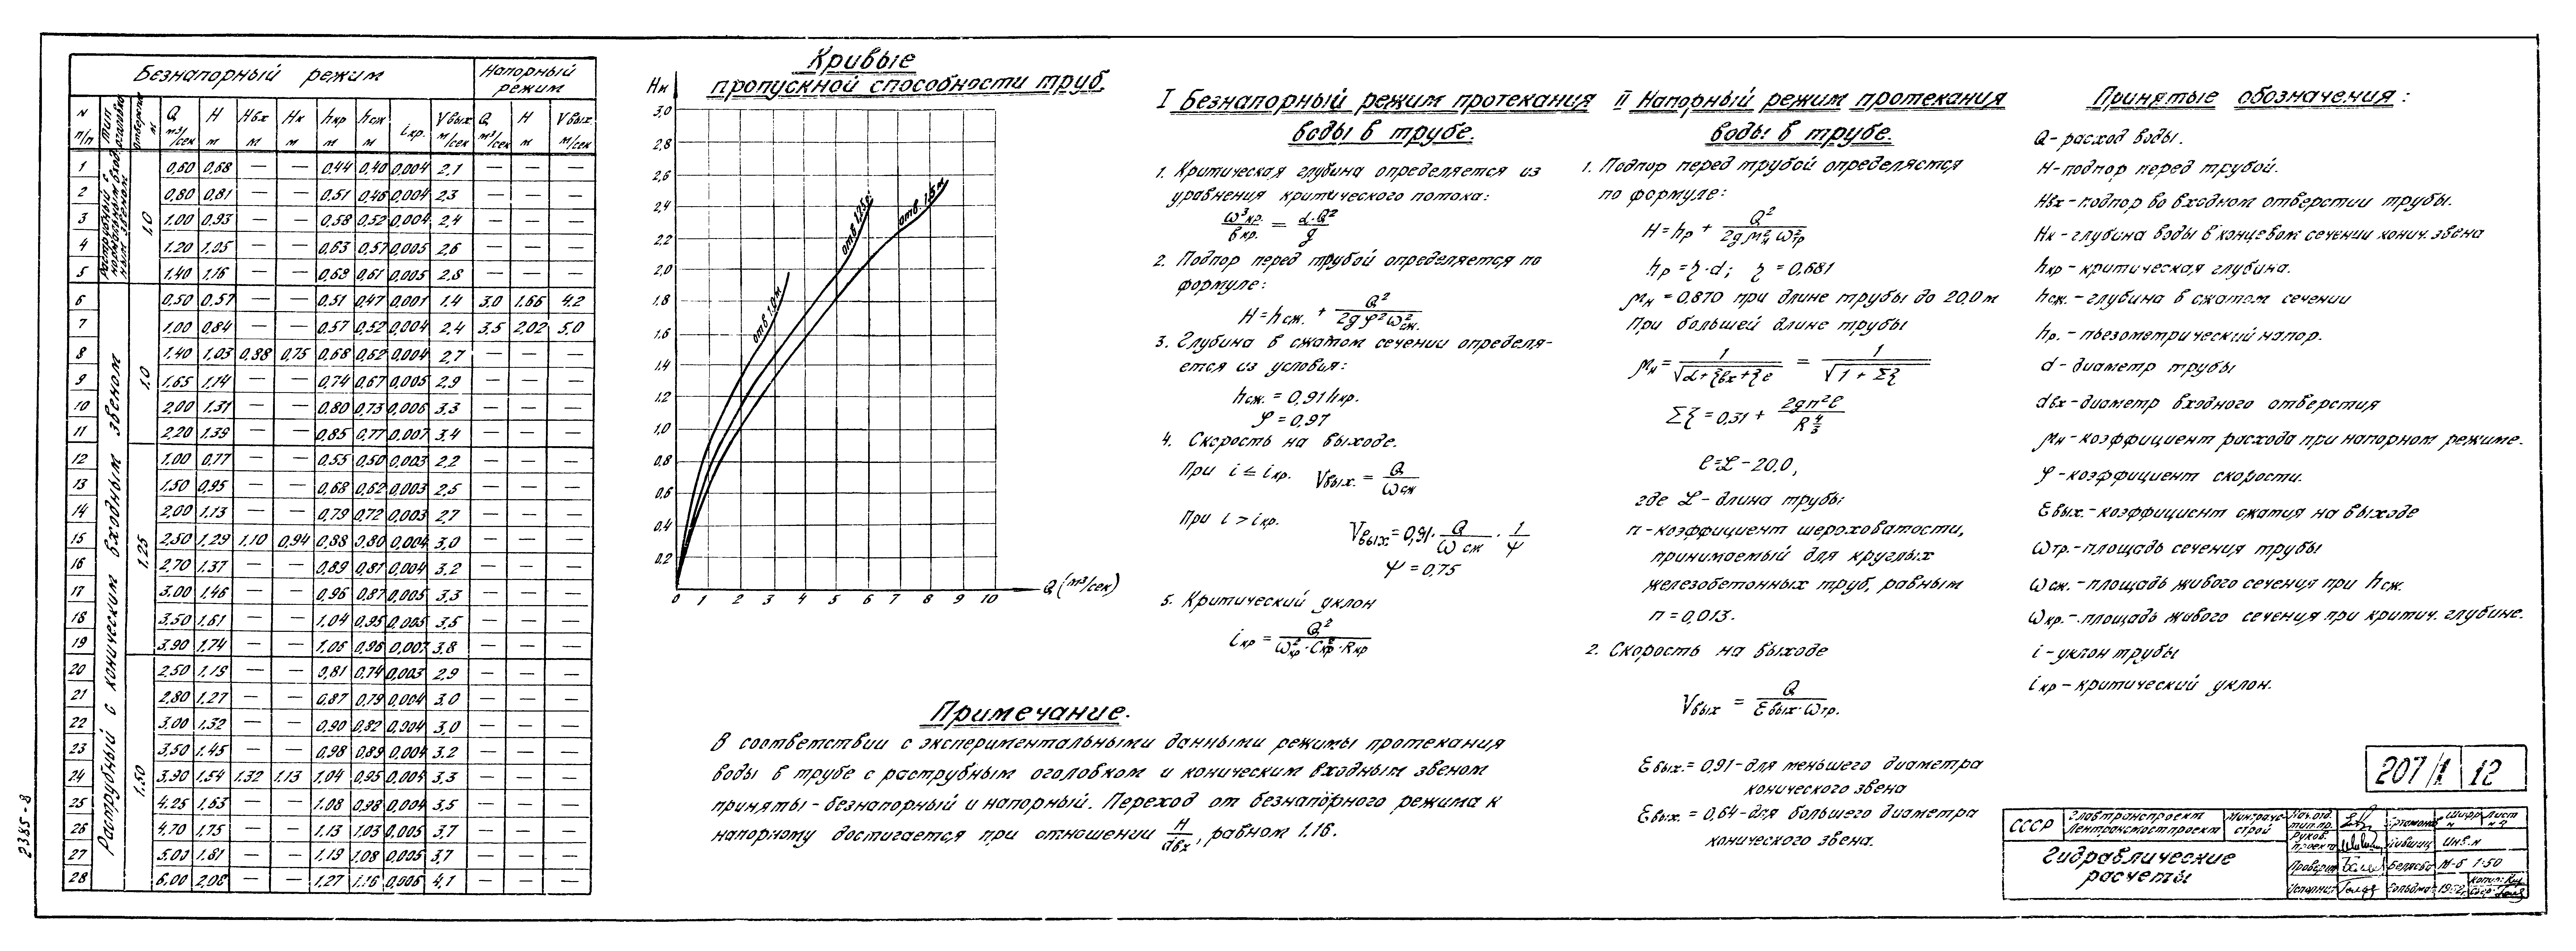 Безнапорный режим
Напорный режим
N п/п | Тип оголовка | отверстие м | Q м³/сек | H м | Hвх м | Hк м | hкр м | hсж м | iкр. | Vвых м/сек | Q м³/сек | H м | Vвых м/сек
Раструбный с нормальным входным звеном
1.0
1 0,60 0,68 — — 0,44 0,40 0,004 2,1 — — —
2 0,80 0,81 — — 0,51 0,46 0,004 2,3 — — —
3 1.00 0,93 — — 0,58 0,52 0,004 2,4 — — —
4 1.20 1,05 — — 0,63 0,57 0,005 2,6 — — —
5 1.40 1,16 — — 0,68 0,61 0,005 2,8 — — —
Раструбный с коническим входным звеном
1.0
6 0,50 0,57 — — 0,51 0,47 0,001 1.4 3,0 1.66 4.2
7 1,00 0,84 — — 0,57 0,52 0,004 2,4 3,5 2,02 5,0
8 1,40 1,03 0,88 0,75 0,68 0,62 0,004 2,7 — — —
9 1,65 1,14 — — 0,74 0,67 0,005 2,9 — — —
10 2,00 1.31 — — 0,80 0,73 0,006 3,3 — — —
11 2,20 1.39 — — 0,85 0,77 0,007 3,4 — — —
1.25
12 1.00 0,77 — — 0,55 0,50 0,003 2,2 — — —
13 1,50 0,95 — — 0,68 0,62 0,003 2,5 — — —
14 2,00 1.13 — — 0,79 0,72 0,003 2,7 — — —
15 2,50 1,29 1,10 0,94 0,88 0,80 0,004 3,0 — — —
16 2,70 1.37 — — 0,89 0,81 0,004 3,2 — — —
17 3,00 1.46 — — 0,96 0,87 0,005 3,3 — — —
18 3,50 1,61 — — 1.04 0,95 0,005 3,5 — — —
19 3,90 1,74 — — 1,06 0,96 0,007 3,8 — — —
1.50
20 2,50 1,19 — — 0,81 0,74 0,003 2,9 — — —
21 2,80 1.27 — — 0,87 0,79 0,004 3,0 — — —
22 3,00 1.32 — — 0,90 0,82 0,004 3,0 — — —
23 3,50 1.45 — — 0,98 0,89 0,004 3,2 — — —
24 3,90 1.54 1.32 1.13 1,04 0,95 0,004 3,3 — — —
25 4.25 1.63 — — 1.08 0,98 0,004 3,5 — — —
26 4.70 1.75 — — 1.13 1.03 0,005 3,7 — — —
27 5.00 1.81 — — 1.19 1.08 0,005 3,7 — — —
28 6,00 2,08 — — 1,27 1.16 0,006 4,1 — — —
2385-8
Кривые
пропускной способности труб.
Hн
3,0
2,8
2,6
2,4
2,2
2,0
1.8
1.6
1.4
1.2
1,0
0,8
0,6
0,4
0,2
0 1 2 3 4 5 6 7 8 9 10
Q (м³/сек)
отв. 1.0м
отв. 1.25м
отв. 1.5м
Примечание.
В соответствии с экспериментальными данными режимы протекания
воды в трубе с раструбным оголовком и коническим входным звеном
приняты-безнапорный и напорный. Переход от безнапорного режима к
напорному достигается при отношении H/dвх, равном 1.16.
I Безнапорный режим протекания
воды в трубе.
1. Критическая глубина определяется из
уравнения критического потока:
ω³кр./bкр. = α·Q²/g
2. Подпор перед трубой определяется по
формуле:
H = hсж. + Q²/2g φ² ω²сж.
3. Глубина в сжатом сечении определя-
ется из условия:
hсж. = 0,91 hкр.
φ = 0,97
4. Скорость на выходе.
При i ≤ iкр. Vвых. = Q/ωсж
При i > iкр. Vвых = 0,91· Q/ωсж · 1/ψ
ψ = 0,75
5. Критический уклон
iкр = Q²/ω²кр·C²кр·Rкр
II Напорный режим протекания
воды в трубе.
1. Подпор перед трубой определяется
по формуле:
H = hр + Q²/2g μ²н ω²тр
hр = η·d; η = 0,681
μн = 0,870 при длине трубы до 20,0 м
При большей длине трубы
μн = 1/√α+ξвх+ξe = 1/√1+Σξ
Σξ = 0,31 + 2gn²ℓ/R 4/3
ℓ = L − 20,0,
где L − длина трубы;
n - коэффициент шероховатости,
принимаемый для круглых
железобетонных труб, равным
n = 0,013.
2. Скорость на выходе
Vвых = Q/Eвых·ωтр.
Eвых. = 0,91 - для меньшего диаметра
конического звена
Eвых. = 0,64 - для большего диаметра
конического звена.
Принятые обозначения:
Q - расход воды.
H - подпор перед трубой.
Hвх - подпор во входном отверстии трубы.
Hк - глубина воды в концевом сечении конич. звена
hкр - критическая глубина.
hсж. - глубина в сжатом сечении
hр. - пьезометрический напор.
d - диаметр трубы
dвх - диаметр входного отверстия
μн - коэффициент расхода при напорном режиме.
φ - коэффициент скорости.
Eвых. - коэффициент сжатия на выходе
ωтр. - площадь сечения трубы
ωсж. - площадь живого сечения при hсж.
ωкр. - площадь живого сечения при критич. глубине.
i - уклон трубы
iкр - критический уклон.
207/1 12
СССР
Главтранспроект
Ленгранстмостпроект
Минтрансстрой
Гидравлические
расчеты
Руков. проекта
Проверил
Шифр
Лист
Инв. н
М-б 1:50